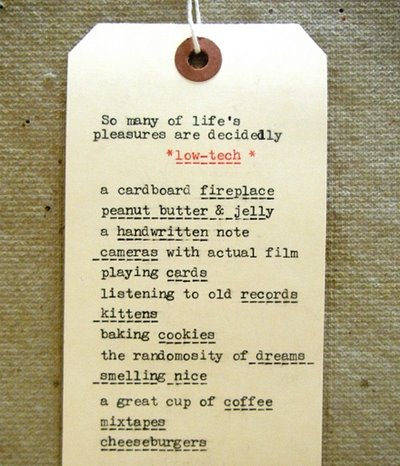 So many of life's
pleasures are decidedly
*low-tech *
a cardboard fireplace
peanut butter & jelly
a handwritten note
cameras with actual film
playing cards
listening to old records
kittens
baking cookies
the randomosity of dreams
smelling nice
a great cup of coffee
mixtapes
cheeseburgers